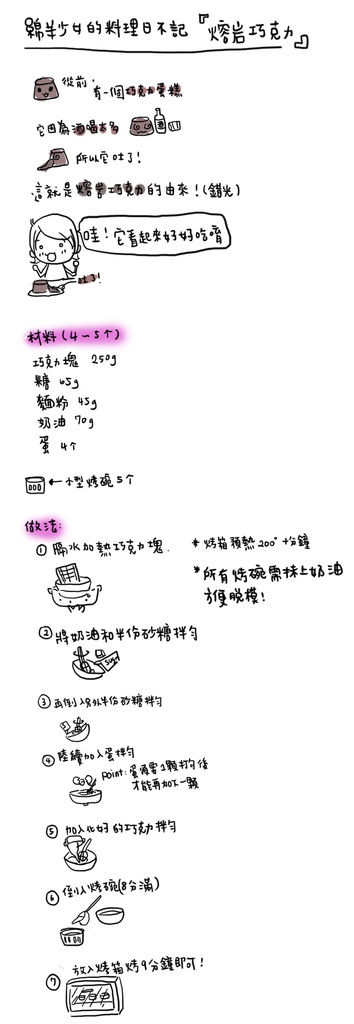 綿羊少女的料理日不記『熔岩巧克力』
從前，
有一個巧克力蛋糕
它因為酒喝太多
所以它吐了！
這就是熔岩巧克力的由來！(錯光)
哇！它看起來好好吃唷
吐了！
材料(4~5个)
巧克力塊 250g
糖 65g
麵粉 45g
奶油 70g
蛋 4个
←小型烤碗 5个
做法：
① 隔水加熱巧克力塊.
* 烤箱預熱200° 十分鐘
*所有烤碗需抹上奶油
方便脫模！
② 將奶油和半份砂糖拌勻
sugar
③ 再倒入另外半份砂糖拌勻
④ 陸續加入蛋拌勻
point：蛋須要1顆打勻後
才能再加下一顆
⑤ 加入化好的巧克力拌勻
⑥ 倒入烤碗(8分滿)
⑦ 放入烤箱烤9分鐘即可！